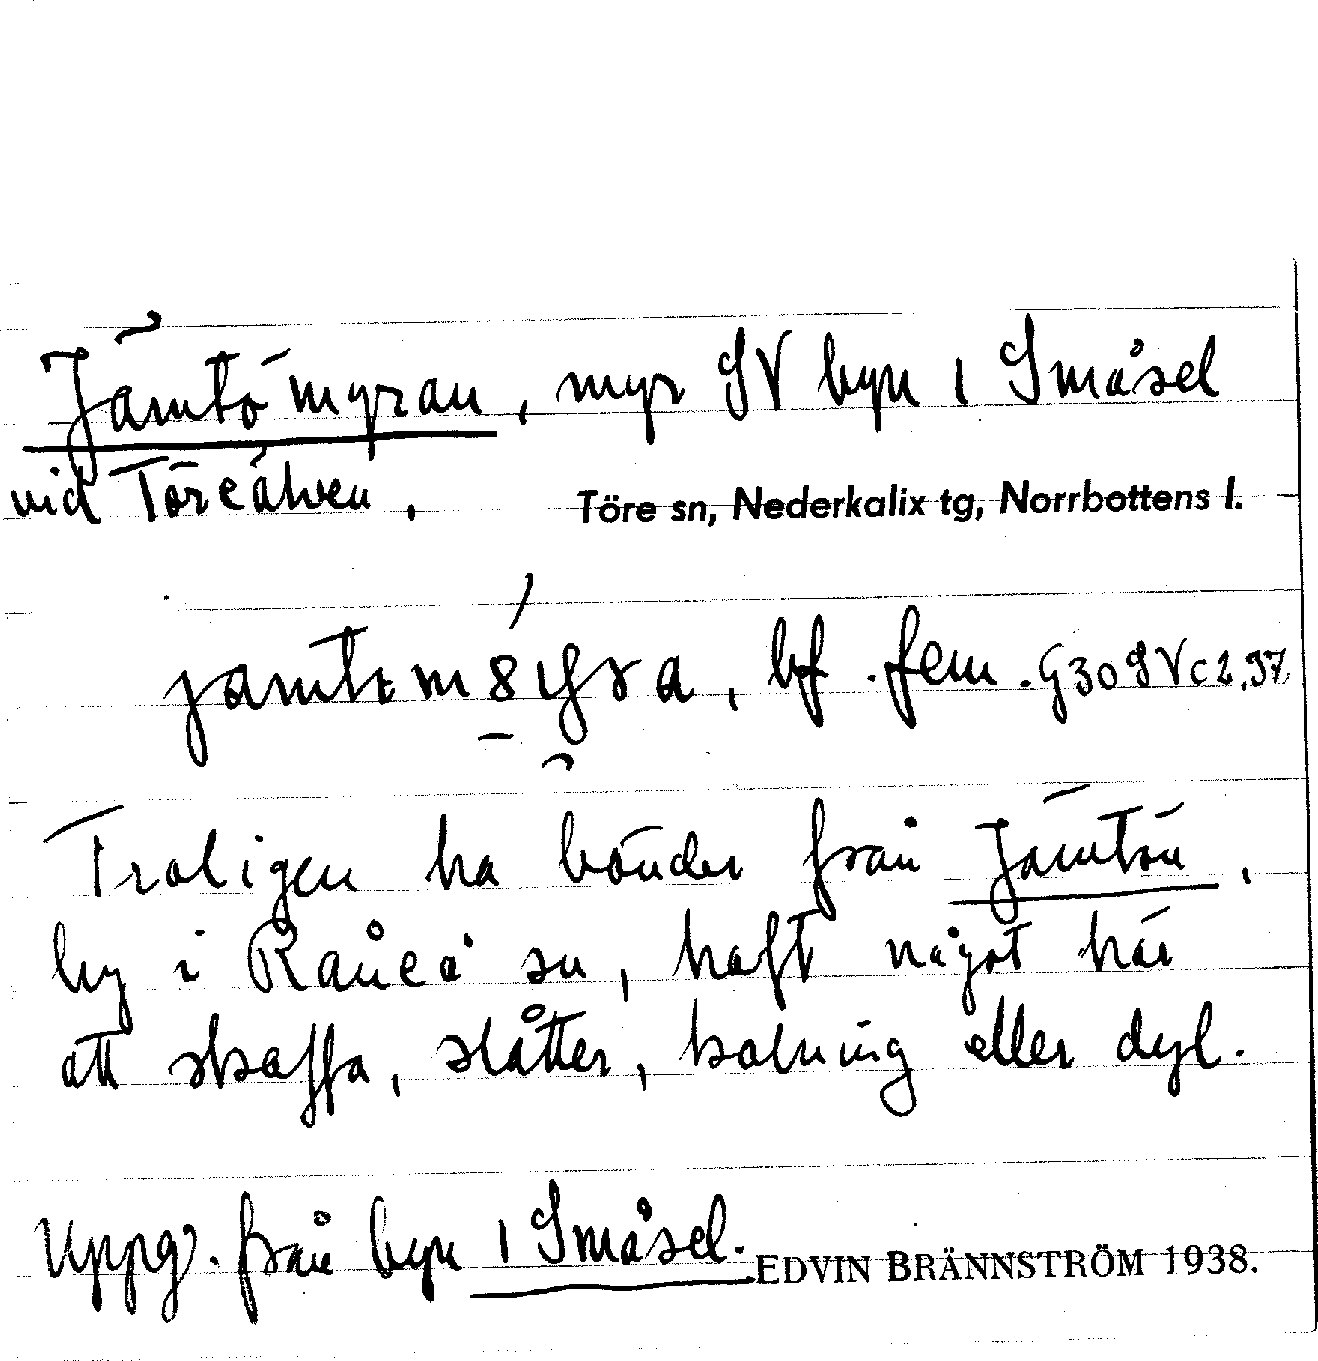 Jämtömyran, myr SV byn 1 Småsel
vid Töreälven.
Töre sn, Nederkalix tg, Norrbottens l.
bf. fem. G30SVc2,37
Troligen ha bönder från Jämtön,
by i Råneå sn, haft något här
att skaffa, slåtter, kolning eller dyl.
Uppg. från byn 1 Småsel.
EDVIN BRÄNNSTRÖM 1938.